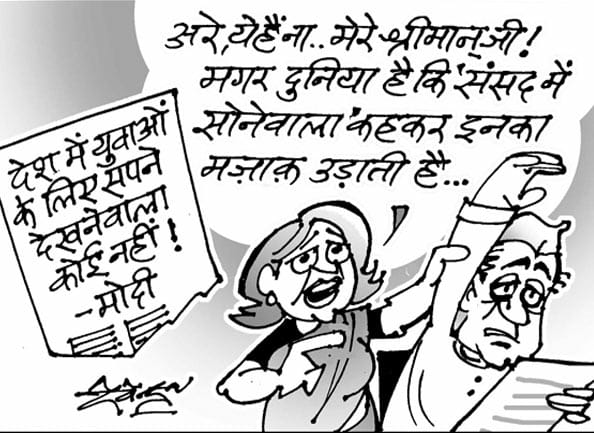 अरे, ये हैं ना.. मेरे श्रीमान् जी!
मगर दुनिया है कि 'संसद में
सोनेवाला' कहकर इनका
मज़ाक़ उड़ाती है...
देश में युवाओं
के लिए सपने
देखनेवाला
कोई नहीं!
-मोदी